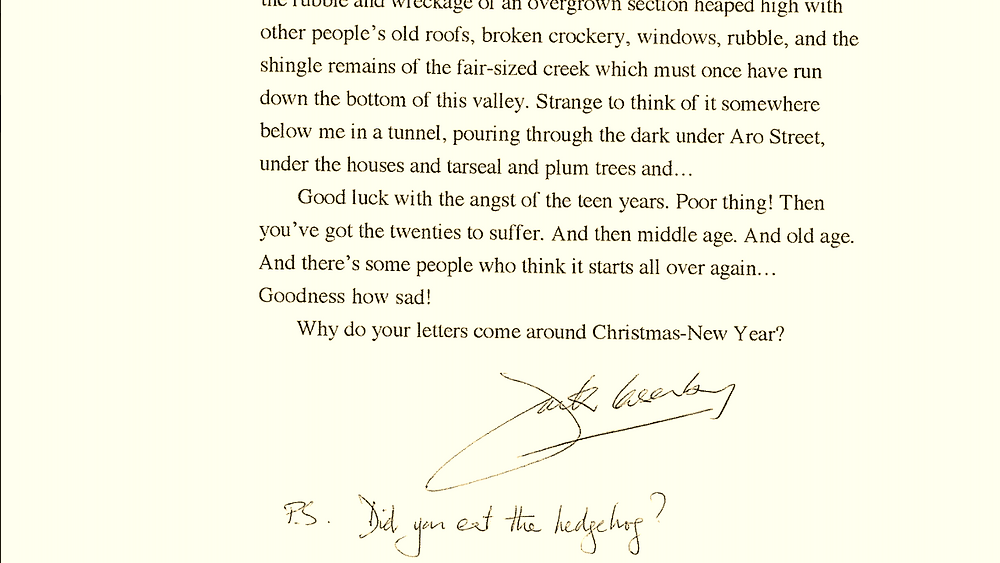 the rubble and wreckage of an overgrown section heaped high with
other people's old roofs, broken crockery, windows, rubble, and the
shingle remains of the fair-sized creek which must once have run
down the bottom of this valley. Strange to think of it somewhere
below me in a tunnel, pouring through the dark under Aro Street,
under the houses and tarseal and plum trees and…
Good luck with the angst of the teen years. Poor thing! Then
you've got the twenties to suffer. And then middle age. And old age.
And there's some people who think it starts all over again…
Goodness how sad!
Why do your letters come around Christmas-New Year?
Jack
P.S. Did you eat the hedgehog?